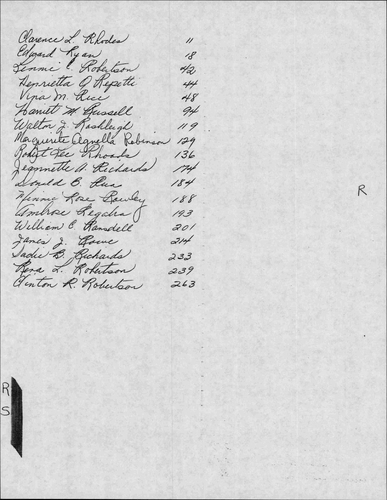 Clarence L. Rhodes 11
Edgard Ryan 18
Lennie C. Robertson 42
Henrietta A Repetti 44
Vina M. Rice 48
Harriet M. Russell 94
Walton J. Rashleigh 119
Marguerite Agnella Robinson 129
Robert Lee Rhoads 136
Jeannette A. Richards 174
Donald B. 184
Minnie Rose Rowley 188
Ambrose Regalia 193
William E Ramsdell 201
James J. Rowe 214
Sadie B. Richards 233
Rena L. Robertson 239
Clinton R. Robertson 263
R
R
S